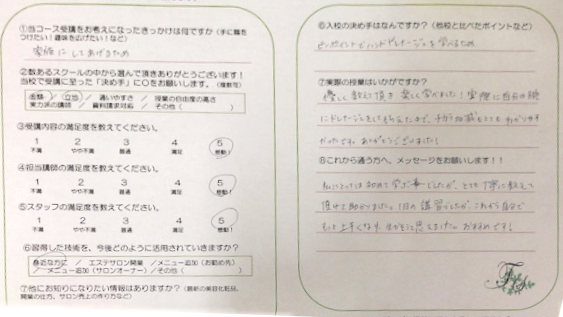 ①当コース受講をお考えになったきっかけは何ですか（手に職を
つけたい！趣味を広げたい！など）
家族にしてあげるため
②数あるスクールの中から選んで頂きありがとうございます！
当校で受講に至った「決め手」に○をお願いします。（複数可）
金額 ／ 立地 ／ 通いやすさ ／ 授業の自由度の高さ
実力派の講師 ／ 資料請求対応 ／ その他（ ）
③受講内容の満足度を教えてください。
1 2 3 4 5
不満 やや不満 普通 満足 感動！
④担当講師の満足度を教えてください。
1 2 3 4 5
不満 やや不満 普通 満足 感動！
⑤スタッフの満足度を教えてください。
1 2 3 4 5
不満 やや不満 普通 満足 感動！
⑥習得した技術を、今後どのように活用されていきますか？
身近な方に ／ エステサロン開業 ／ メニュー追加（お勤め先）
／ メニュー追加（サロンオーナー）／ その他（ ）
⑦他にお知りになりたい情報はありますか？（最新の美容化粧品、
開業の仕方、サロン売上の作り方など）
⑥入校の決め手はなんですか？（他校と比べたポイントなど）
ピンポイントでハンドドレナージュを学べるため
⑦実際の授業はいかがですか？
優しく教えて頂き楽しく学びました！実際に自分の腕
にドレナージュをして
ありがとうございました！
⑧これから通う方へ、メッセージをお願いします！！
私にとっては初めて学ぶ事でしたが、とても丁寧に教えて
頂けて助かりました。1日の講習でしたが、これから自分で
もっと上手くなり おすすめです！